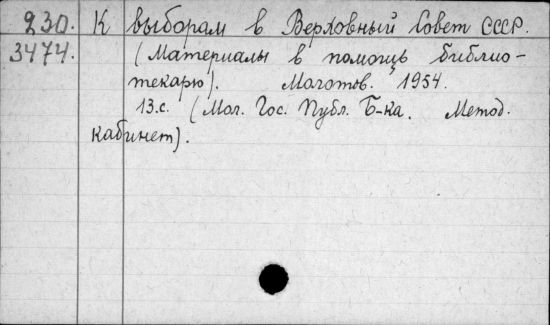 230. К выборам в Верховный Совет СССР.
3474. (Материалы в помощь библио-
текарю). Молотов. 1954.
13.с. (Мол. Гос. Публ. Б-ка. Метод.
кабинет).